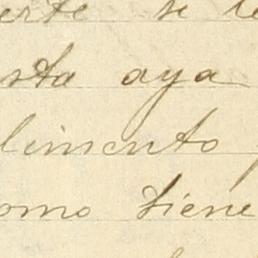 erte se le
sta aya
limento
omo tiene